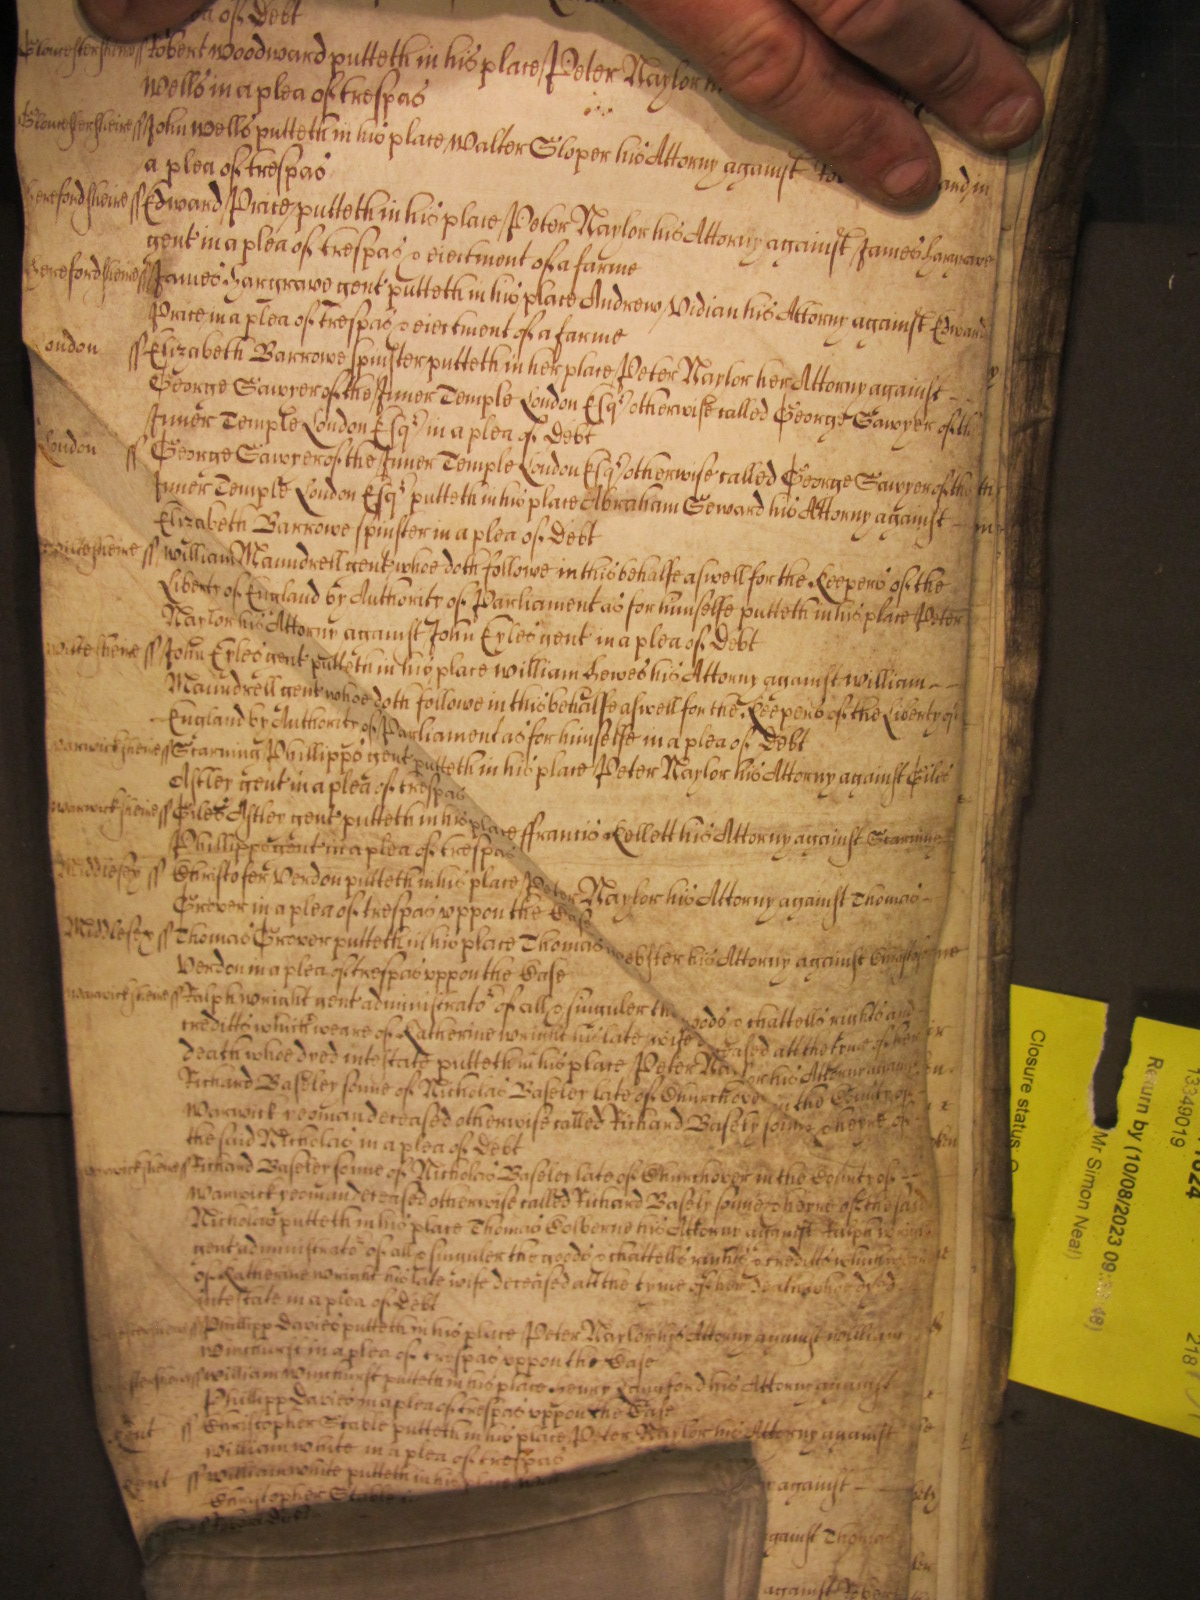 ea of Debt
Gloucestersheire ss Robert Woodward putteth in his place Peter Naylor
Wells in a plea of trespas
Gloucestersheire ss John Wells putteth in his place Walter Sloper his Attorny against
a plea of trespas
herefordsheire ss Edward Price putteth in his place Peter Naylor his Attorny against James hargrave
gent in a plea of trespas & eiectment of a farme
herefordsheire ss James hargrave gent putteth in his place Andrew Vidian his Attorny against Edward
Price in a plea of trespas & eiectment of a farme
London ss Elizabeth Barrowe spinster putteth in her place Peter Naylor her Attorny against
George Sawyer of the Inner Temple London Esqr otherwise called George Sawyer of the
Inner Temple London Esqr in a plea of Debt
London ss George Sawyer of the Inner Temple London Esqr otherwise called George Sawyer of the
Inner Temple London Esqr putteth in his place Abraham Seward his Attorny against
Elizabeth Barrowe spinster in a plea of Debt
ss William Maundrell gent whoe doth followe in this behalfe aswell for the Keepers of the
Liberty of England by Authority of Parliament as for himselfe putteth in his place Peter
Naylor his Attorny against John Eyles gent in a plea of Debt
ss John Eyles gent putteth in his place William hewes his Attorny against William
Maundrell gent whoe doth followe in this behalfe aswell for the Keepers of the Liberty of
England by Authority of Parliament as for himselfe in a plea of Debt
warwicksheire ss Phillipps gent putteth in his place Peter Naylor his Attorny against Giles
Astley gent in a plea of trespas
warwicksheire ss Giles Astley gent putteth in his place ffrancis Kellett his Attorny against
Phillipps gent in a plea of trespas
Middlesex ss Christofer Verdon putteth in his place Peter Naylor his Attorny against Thomas
Grover in a plea of trespas vppon the Case
Middlesex ss Thomas Grover putteth in his place Thomas Webster his Attorny against
Verdon in a plea of trespas vppon the Case
warwicksheire ss Ralph Wright gent administrator of all & singuler the goods & chattells rights and
creditts which weare of Katherine Wright his late wife deceased att the tyme of her
death whoe dyed intestate putteth in his place Peter Naylor his Attorny against
Richard Baseley sonne of Nicholas Baseley late of Churchover in the County of
Warwick yeoman deceased otherwise called Richard Basely sonne & heyre of
the said Nicholas in a plea of Debt
warwicksheire ss Richard Baseley sonne of Nicholas Baseley late of Churchover in the County of
Warwick yeoman deceased otherwise called Richard Basely sonne & heyre of the said
Nicholas putteth in his place Thomas Colberne his Attorny against Ralph Wright
gent administrator of all & singuler the goods & chattells rights & creditts which
of Katherine Wright his late wife deceased att the tyme of her death whoe dyed
intestate in a plea of Debt
ss Phillipp Davies putteth in his place Peter Naylor his Attorny against William
Winchurst in a plea of trespas vppon the Case
ss William Winchurst putteth in his place Henry his Attorny against
Phillipp Davies in a plea of trespas vppon the Case
Kent ss Christopher Stable putteth in his place Peter Naylor his Attorny against
William White in a plea of trespas
Kent ss William White putteth in his place
Christopher Stable
against
against Thomas
against
Closure status:
Mr Simon Neal)
Return by (10/08/2023 09:
13349019